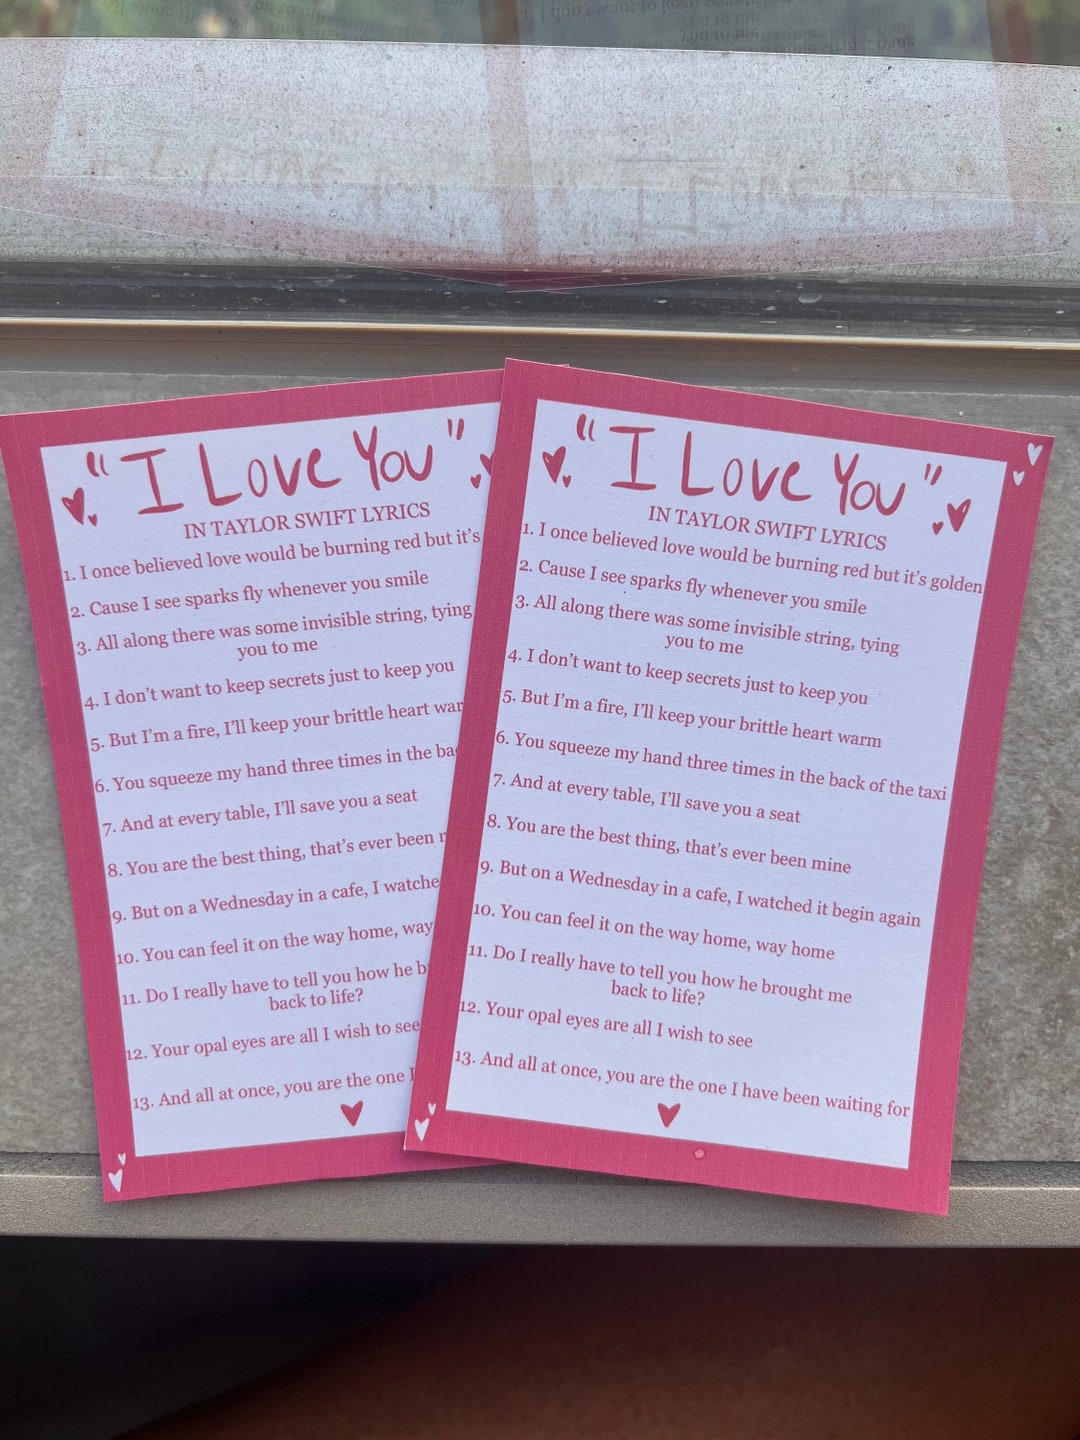 "I Love You"
IN TAYLOR SWIFT LYRICS
1. I once believed love would be burning red but it's
2. Cause I see sparks fly whenever you smile
3. All along there was some invisible string, tying
you to me
4. I don't want to keep secrets just to keep you
5. But I'm a fire, I'll keep your brittle heart war
6. You squeeze my hand three times in the ba
7. And at every table, I'll save you a seat
8. You are the best thing, that's ever been
9. But on a Wednesday in a cafe, I watche
10. You can feel it on the way home, way
11. Do I really have to tell you how he b
back to life?
12. Your opal eyes are all I wish to see
13. And all at once, you are the one I
"I Love You"
IN TAYLOR SWIFT LYRICS
1. I once believed love would be burning red but it's golden
2. Cause I see sparks fly whenever you smile
3. All along there was some invisible string, tying
you to me
4. I don't want to keep secrets just to keep you
5. But I'm a fire, I'll keep your brittle heart warm
6. You squeeze my hand three times in the back of the taxi
7. And at every table, I'll save you a seat
8. You are the best thing, that's ever been mine
9. But on a Wednesday in a cafe, I watched it begin again
10. You can feel it on the way home, way home
11. Do I really have to tell you how he brought me
back to life?
12. Your opal eyes are all I wish to see
13. And all at once, you are the one I have been waiting for